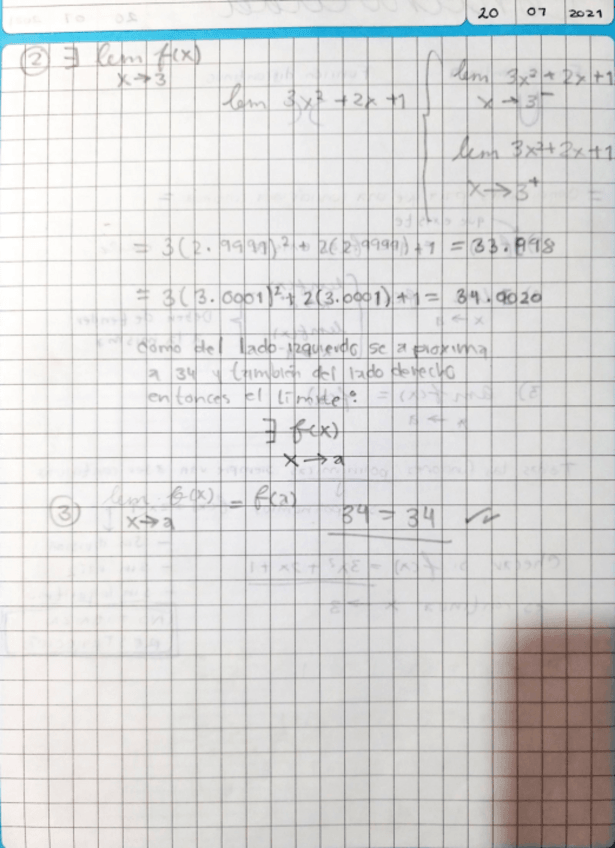 20 07 2021
② ∃ lim f(x)
x→3
lim 3x² + 2x + 1
lim 3x² + 2x + 1
x → 3⁻
lim 3x² + 2x + 1
x → 3⁺
= 3(2.9999)² + 2(2.9999) + 1 = 33.998
= 3(3.0001)² + 2(3.0001) + 1 = 34.0020
como del lado izquierdo se aproxima
a 34 y también del lado derecho
entonces el limite:
∃ f(x)
x→a
③ lim f(x) = f(a) 34 = 34
x→a